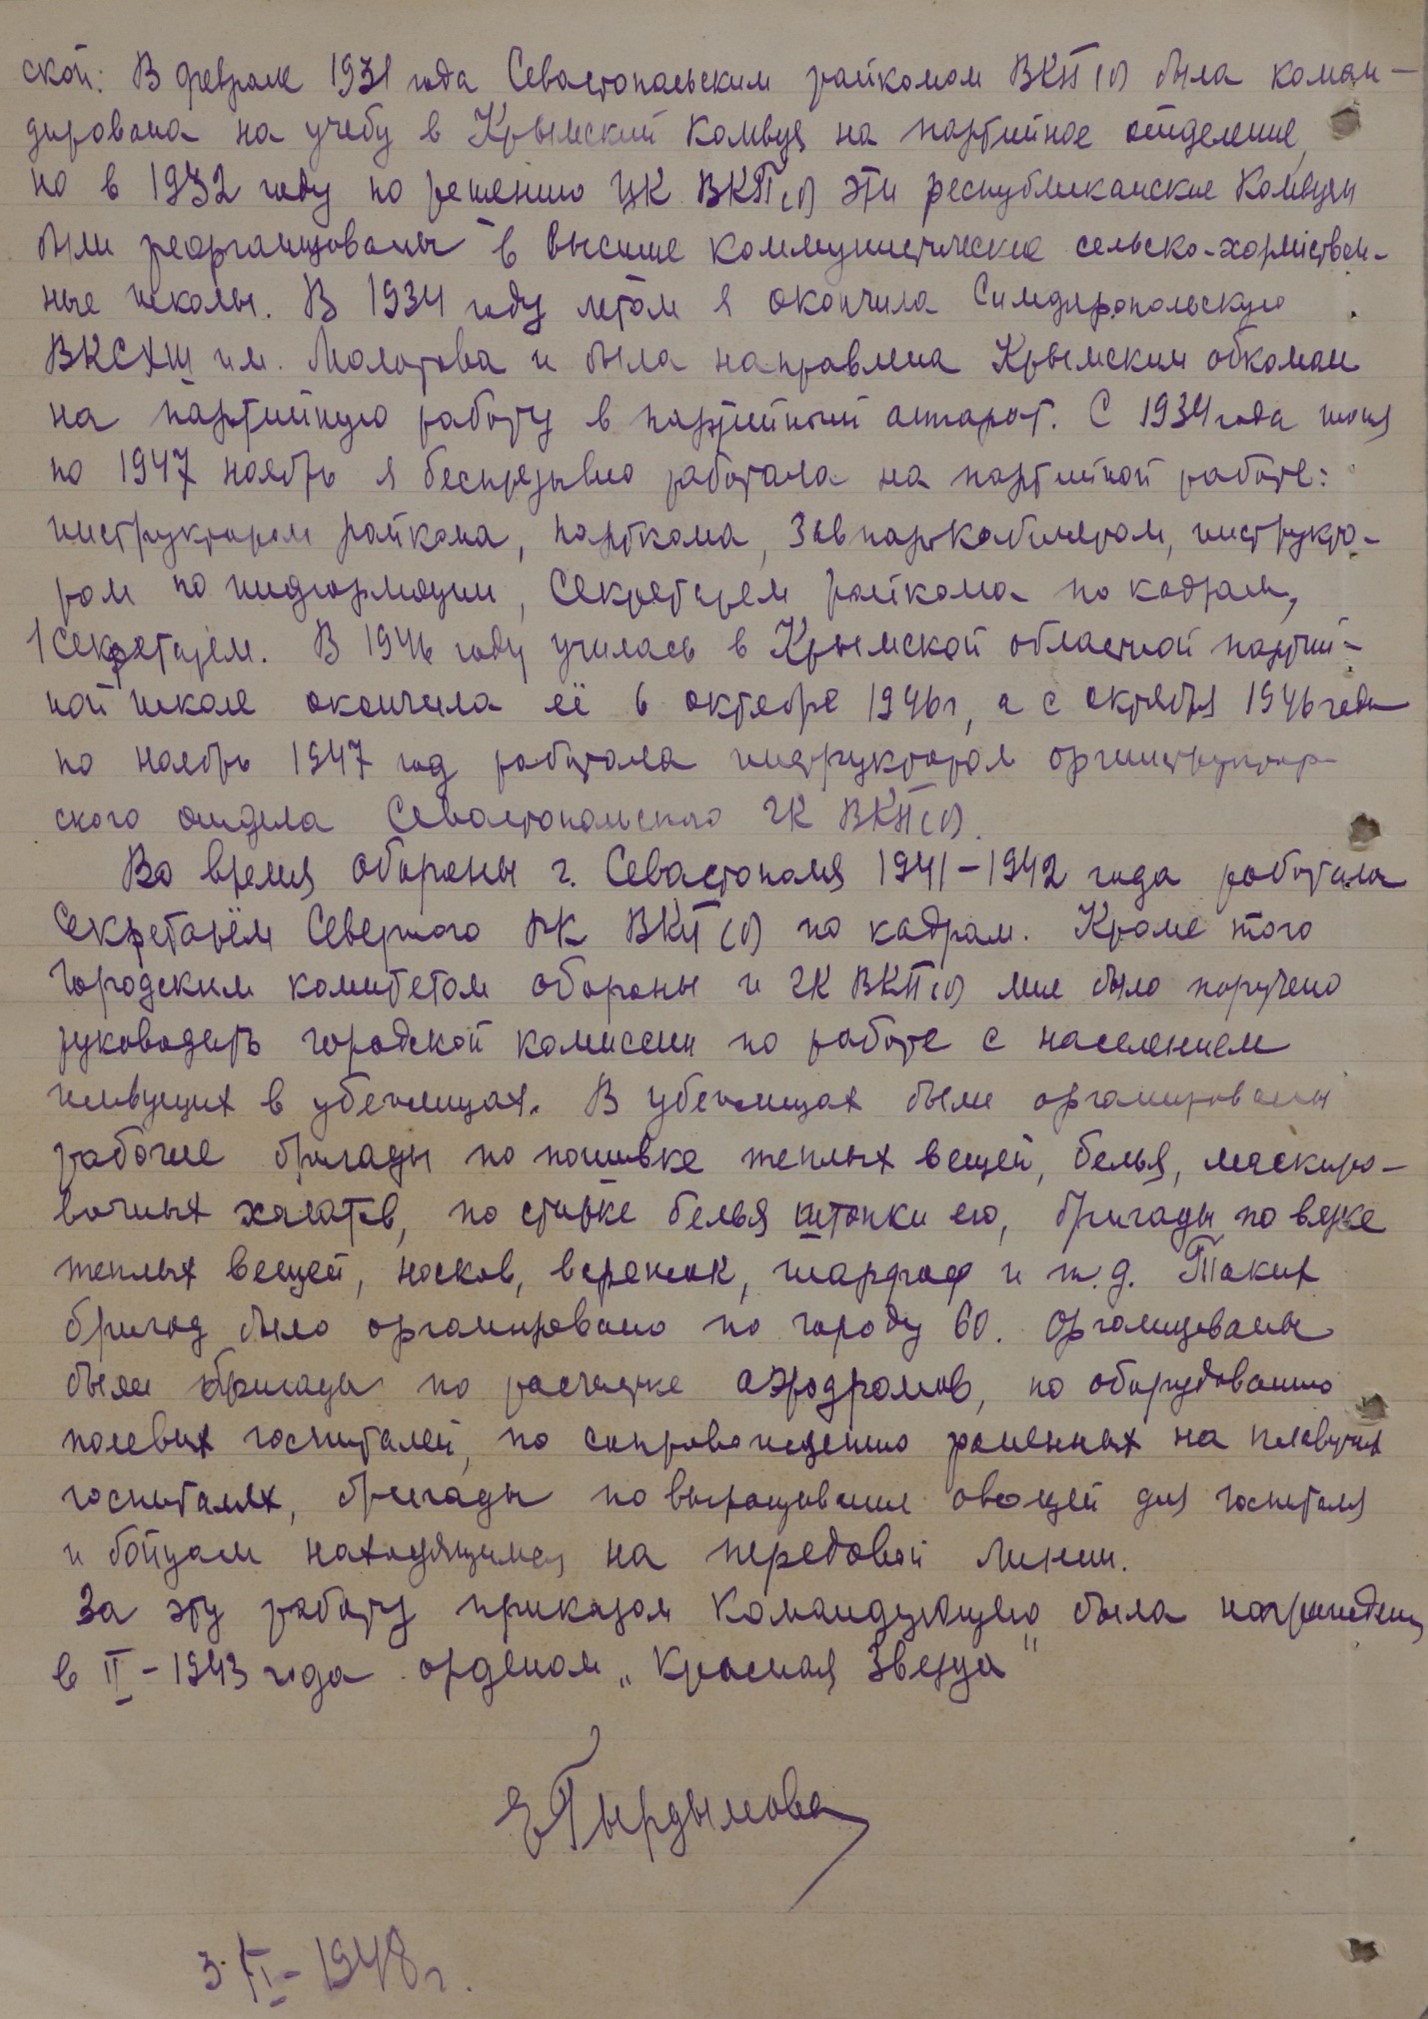 ской: В феврале 1931 года Севастопольским райкомом ВКП(б) была коман-
дирована на учебу в Крымский Комвуз на партийное отделение,
но в 1932 году по решению ЦК ВКП(б) эти республиканские Комвузы
были реорганизованы в высшие коммунистические сельско-хозяйствен-
ные школы. В 1934 году летом я окончила Симферопольскую
ВКСХШ им. Молотова и была направлена Крымским обкомом
на партийную работу в партийный аппарат. С 1934 года июня
по 1947 ноябрь я беспрерывно работала на партийной работе:
инструктором райкома, парткома, завпарткабинетом, инструкто-
ром по информации, секретарем райкома по кадрам,
1 секретарем. В 1946 году училась в Крымской областной партий-
ной школе окончила её в октябре 1946г, а с октября 1946 года
по ноябрь 1947 год работала инструктором оргинструктор-
ского отдела Севастопольского ГК ВКП(б).
Во время обороны г. Севастополя 1941-1942 года работала
Секретарём Северного РК ВКП(б) по кадрам. Кроме того
Городским комитетом обороны и ГК ВКП(б) мне было поручено
руководить городской комиссии по работе с населением
живущих в убежищах. В убежищах были организованы
рабочие бригады по пошивке теплых вещей, белья, маскиро-
вочных халатов, по стирке белья штопки его, бригады по вязке
теплых вещей, носков, варежек, шарфов и т.д. Таких
бригад было организовано по городу 60. Организованы
были бригады по расчистке аэродромов, по оборудованию
полевых госпиталей, по сопровождению раненных на плавучих
госпиталях, бригады по выращивание овощей для госпиталя
и бойцам находящимся на передовой линии.
За эту работу приказом Командующего была награждена
в II-1943 года орденом „Красная Звезда"
Е Гырдымова
3.VI-1948г.